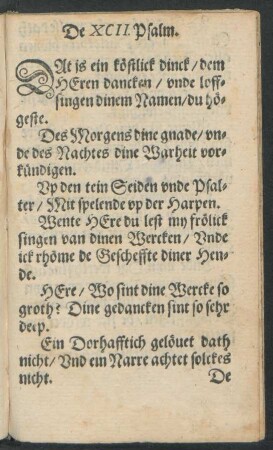 De XCII. Psalm.
DAt is ein köstlick dinck / dem
HEren dancken / vnde loff-
singen dinem Namen / du hö-
geste.
Des Morgens dine gnade / vn-
de des Nachtes dine Warheit vor-
kündigen.
Vp den tein Seiden vnde Psal-
ter / Mit spelende vp der Harpen.
Wente HEre du lest my frölick
singen van dinen Wercken / Vnde
ick rhöme de Gescheffte diner Hen-
de.
HEre / Wo sint dine Wercke so
groth? Dine gedancken sint so sehr
deep.
Ein Dorhafftich gelöuet dath
nicht / Vnd ein Narre achtet solckes
nicht.
De